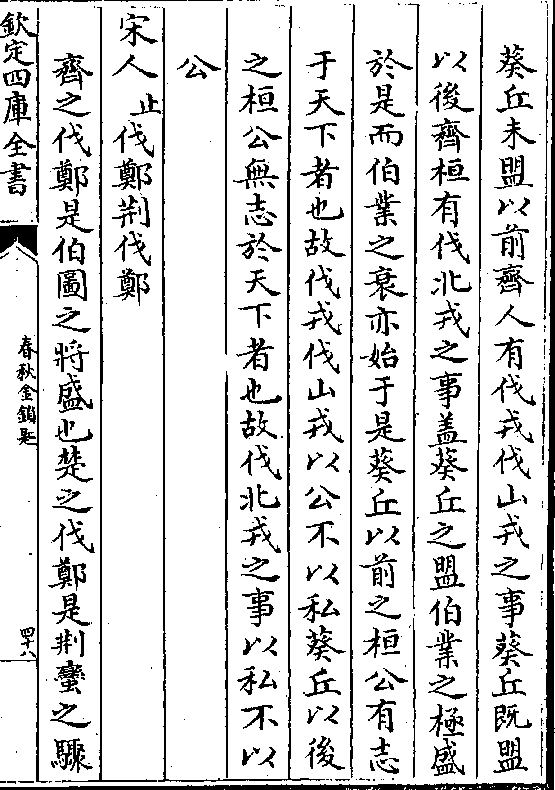 葵丘未盟以前齊人有伐戎伐山戎之事葵丘既盟
以後齊桓有伐北戎之事盖葵丘之盟伯業之極盛
於是而伯業之衰亦始于是葵丘以前之桓公有志
于天下者也故伐戎伐山戎以公不以私葵丘以後
之桓公無志於天下者也故伐北戎之事以私不以
公
宋人止伐鄭荆伐鄭
齊之伐鄭是伯圖之將盛也楚之伐鄭是荆蠻之驟
欽定四庫全書
春秋金鎖匙
四十八